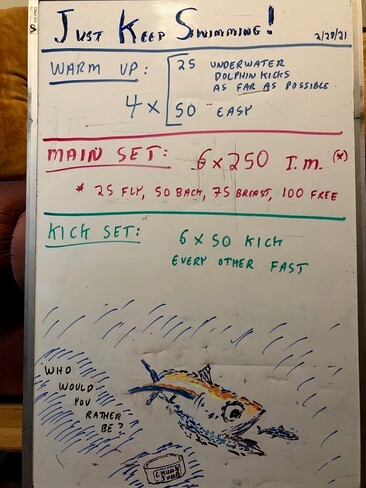 Just Keep Swimming!
2/28/21
WARM UP:
4 x
25 UNDERWATER
DOLPHIN KICKS
AS FAR AS POSSIBLE
50 EASY
MAIN SET: 6 x 250 I.M. (*)
* 25 FLY, 50 BACK, 75 BREAST, 100 FREE
KICK SET: 6 x 50 KICK
EVERY OTHER FAST
WHO
WOULD
YOU
RATHER
BE?
CHUNK
TUNA